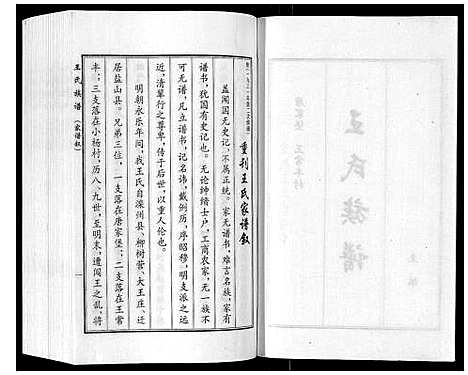 王氏族谱
重刊王氏家谱叙
盖闻国无史记，不属正统。家无谱书，难言名族，家有
谱书，犹国有史记也。无论绅缙士户，工商农家，无一族不
可无谱书，凡立谱书，记名讳，戴例历，序昭穆，明支派之远
近，清辈行之尊卑，传于后世，以重人伦也。
明朝永乐年间，我王氏自滦州县柳树营、大王庄、迁
居盐山县。兄弟三位，一支落在唐家堡；二支落在王常
丰；三支落在小杨村，历八、九世，至明末，遭闯王之乱，将
王氏族谱（家谱叙）
一